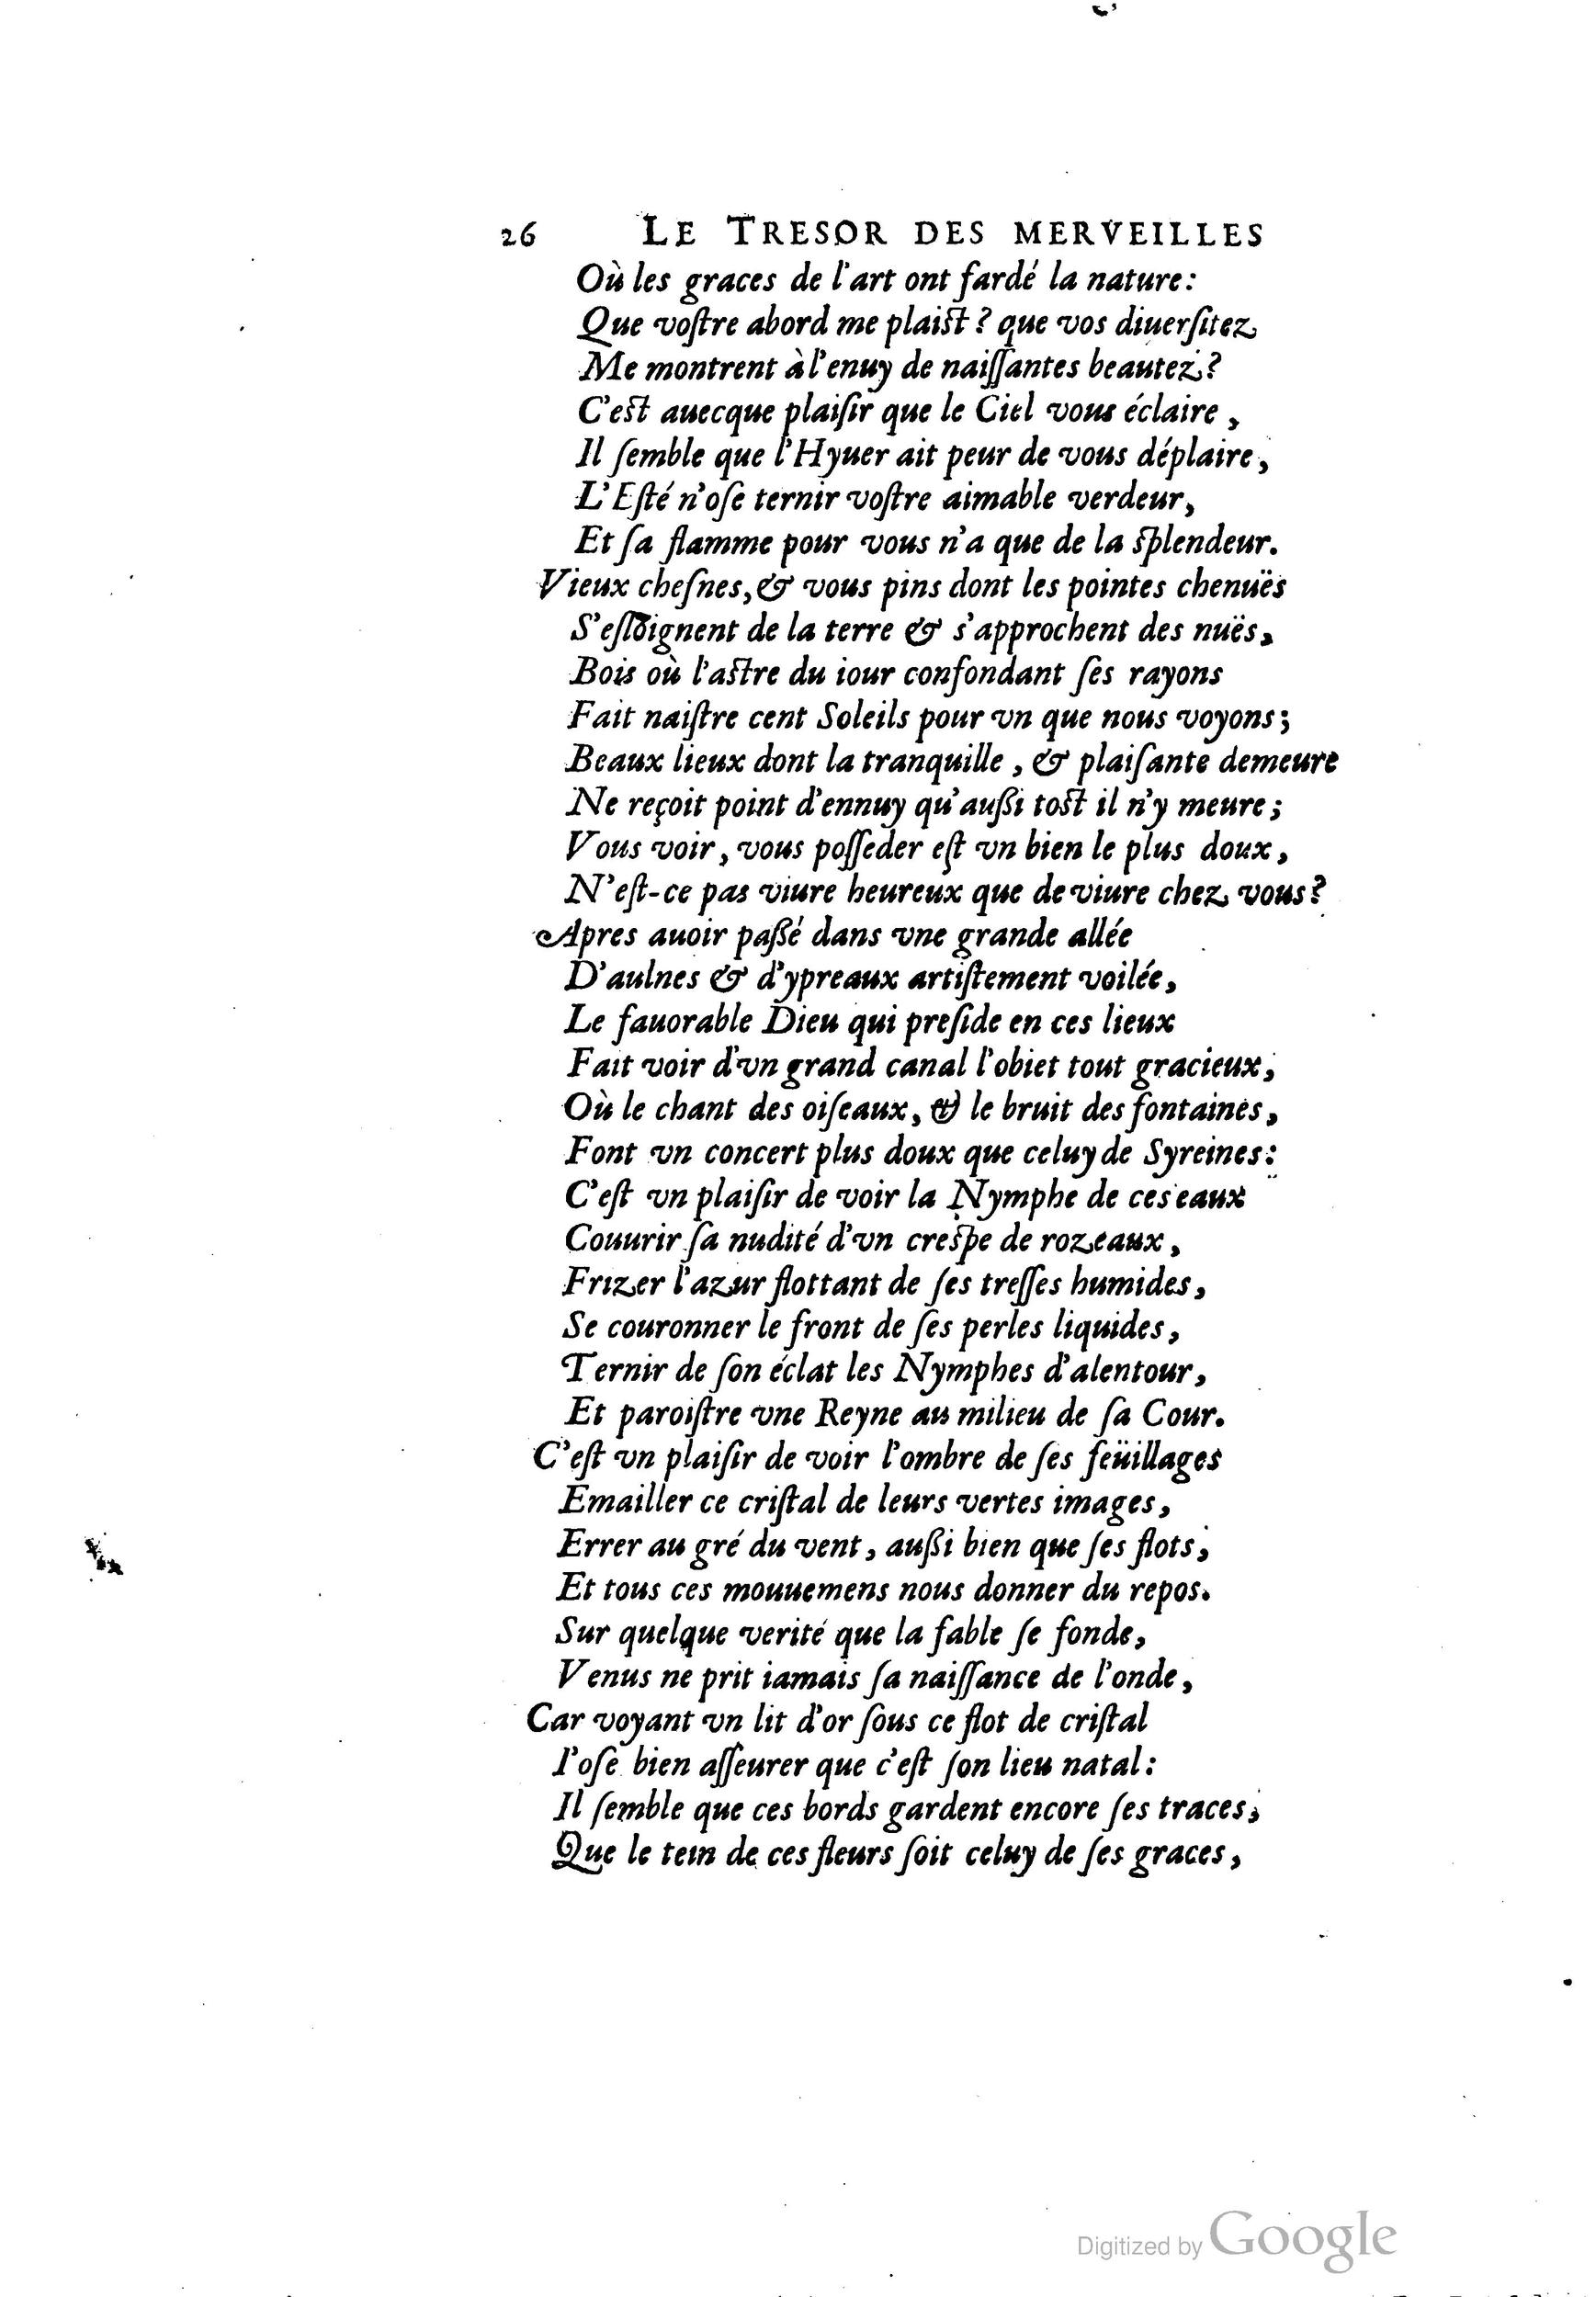 26 LE TRESOR DES MERVEILLES
Où les graces de l'art ont fardé la nature:
Que voſtre abord me plaiſt? que vos diuerſitez
Me montrent à l'enuy de naiſſantes beautez?
C'eſt auecque plaiſir que le Ciel vous éclaire,
Il ſemble que l'Hyuer ait peur de vous déplaire,
L'Eſté n'oſe ternir voſtre aimable verdeur,
Et ſa flamme pour vous n'a que de la ſplendeur.
Vieux cheſnes, & vous pins dont les pointes chenuës
S'eſloignent de la terre & s'approchent des nuës,
Bois où l'aſtre du iour confondant ſes rayons
Fait naiſtre cent Soleils pour vn que nous voyons;
Beaux lieux dont la tranquille, & plaiſante demeure
Ne reçoit point d'ennuy qu'auſſi toſt il n'y meure;
Vous voir, vous poſſeder eſt vn bien le plus doux,
N'eſt-ce pas viure heureux que de viure chez vous?
Apres auoir paſſé dans vne grande allée
D'aulnes & d'ypreaux artiſtement voilée,
Le fauorable Dieu qui preſide en ces lieux
Fait voir d'vn grand canal l'obiet tout gracieux,
Où le chant des oiſeaux, & le bruit des fontaines,
Font vn concert plus doux que celuy de Syreines:
C'eſt vn plaiſir de voir la Nymphe de ces eaux
Couurir ſa nudité d'vn creſpe de rozeaux,
Frizer l'azur flottant de ſes treſſes humides,
Se couronner le front de ſes perles liquides,
Ternir de ſon éclat les Nymphes d'alentour,
Et paroiſtre vne Reyne au milieu de ſa Cour.
C'eſt vn plaiſir de voir l'ombre de ſes feüillages
Emailler ce criſtal de leurs vertes images,
Errer au gré du vent, auſſi bien que ſes flots,
Et tous ces mouuemens nous donner du repos.
Sur quelque verité que la fable ſe fonde,
Venus ne prit iamais ſa naiſſance de l'onde,
Car voyant vn lit d'or ſous ce flot de criſtal
I'oſe bien aſſeurer que c'eſt ſon lieu natal:
Il ſemble que ces bords gardent encore ſes traces,
Que le tein de ces fleurs ſoit celuy de ſes graces,
Digitized by Google